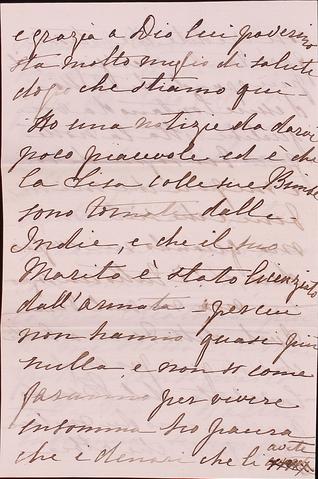 e grazia a Dio lui poverino
sta molto meglio di salute
dopo che stiamo qui -
Ho una notizie da darvi
poco piacevole ed è che
la Lisa colle sue Bimbe
sono tornate dalle
Indie, e che il suo
Marito è stato licenziato
dall'armata - percui
non hanno quasi più
nulla, e non so come
faranno per vivere
insomma ho paura
che i denari che li avete